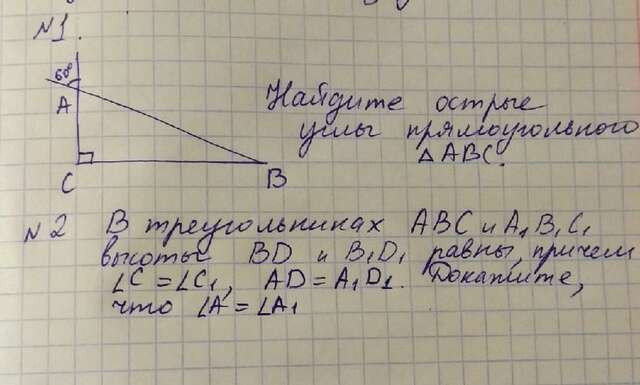 №1.
60°
A
C
B
Найдите острые
углы прямоугольного
△ABC.
№2 В треугольниках ABC и A₁B₁C₁
высоты BD и B₁D₁ равны, причем
∠C = ∠C₁, AD = A₁D₁. Докажите,
что ∠A = ∠A₁